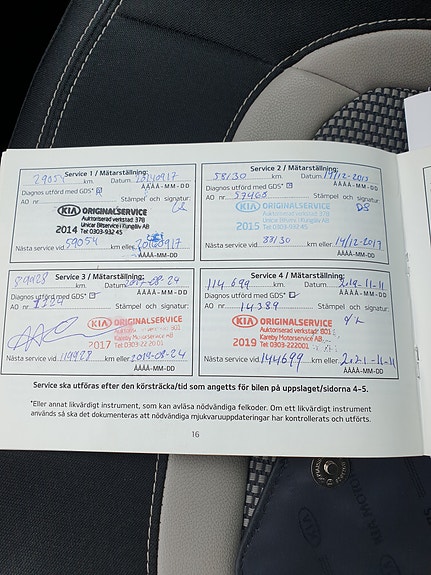 Service 1 / Mätarställning:
km. Datum. 20140917
Diagnos utförd med GDS*
ÅÅÅÅ-MM-DD
AO nr Stämpel och signatur:
KIA ORIGINALSERVICE
Auktoriserad verkstad 378
Unicar Bilservice i Kungälv AB
2014 Tel 0303-932 45
Nästa service vid 59054 km eller
ÅÅÅÅ-MM-DD
Service 2 / Mätarställning:
58130 km. Datum. 14/12-2015
Diagnos utförd med GDS*
ÅÅÅÅ-MM-DD
AO nr. 59468 Stämpel och signatur:
KIA ORIGINALSERVICE DS
Auktoriserad verkstad 378
Unicar Bilservice i Kungälv AB
2015 Tel 0303-932 45
Nästa service vid 88130 km eller 14/12-2017
ÅÅÅÅ-MM-DD
Service 3 / Mätarställning:
89928 km. Datum 2017-08-24
Diagnos utförd med GDS*
ÅÅÅÅ-MM-DD
AO nr Stämpel och signatur:
KIA ORIGINALSERVICE
Auktoriserad verkstad 801
Kareby Motorservice AB
2017 Tel 0303-222001
Nästa service vid 119928 km eller 2019-08-24
ÅÅÅÅ-MM-DD
Service 4 / Mätarställning:
114699 km. Datum. 2019-11-11
Diagnos utförd med GDS*
ÅÅÅÅ-MM-DD
AO nr. 14389 Stämpel och signatur:
KIA ORIGINALSERVICE
Auktoriserad verkstad 801
Kareby Motorservice AB
2019 Tel 0303-222001
Nästa service vid 144699 km eller 2021-11-11
ÅÅÅÅ-MM-DD
Service ska utföras efter den körsträcka/tid som angetts för bilen på uppslaget/sidorna 4–5.
*Eller annat likvärdigt instrument, som kan avläsa nödvändiga felkoder. Om ett likvärdigt instrument
används så ska det dokumenteras att nödvändiga mjukvaruuppdateringar har kontrollerats och utförts.
16
KIA MOTO